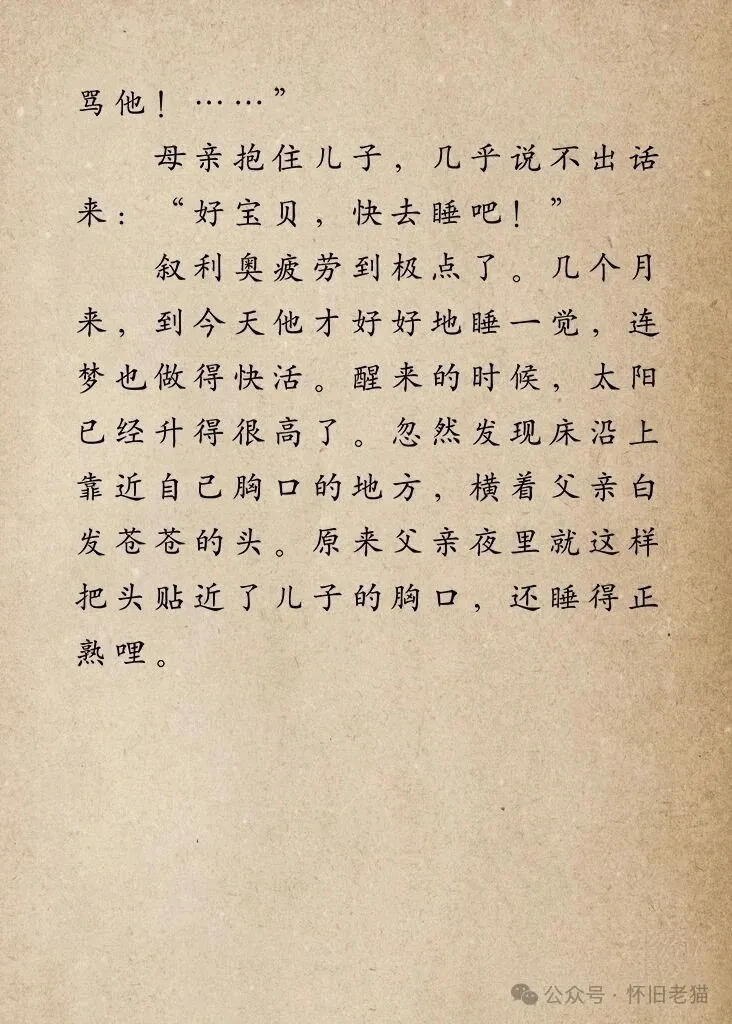 骂他！……”
母亲抱住儿子，几乎说不出话
来：“好宝贝，快去睡吧！”
叙利奥疲劳到极点了。几个月
来，到今天他才好好地睡一觉，连
梦也做得快活。醒来的时候，太阳
已经升得很高了。忽然发现床沿上
靠近自己胸口的地方，横着父亲白
发苍苍的头。原来父亲夜里就这样
把头贴近了儿子的胸口，还睡得正
熟哩。
公众号·怀旧老猫